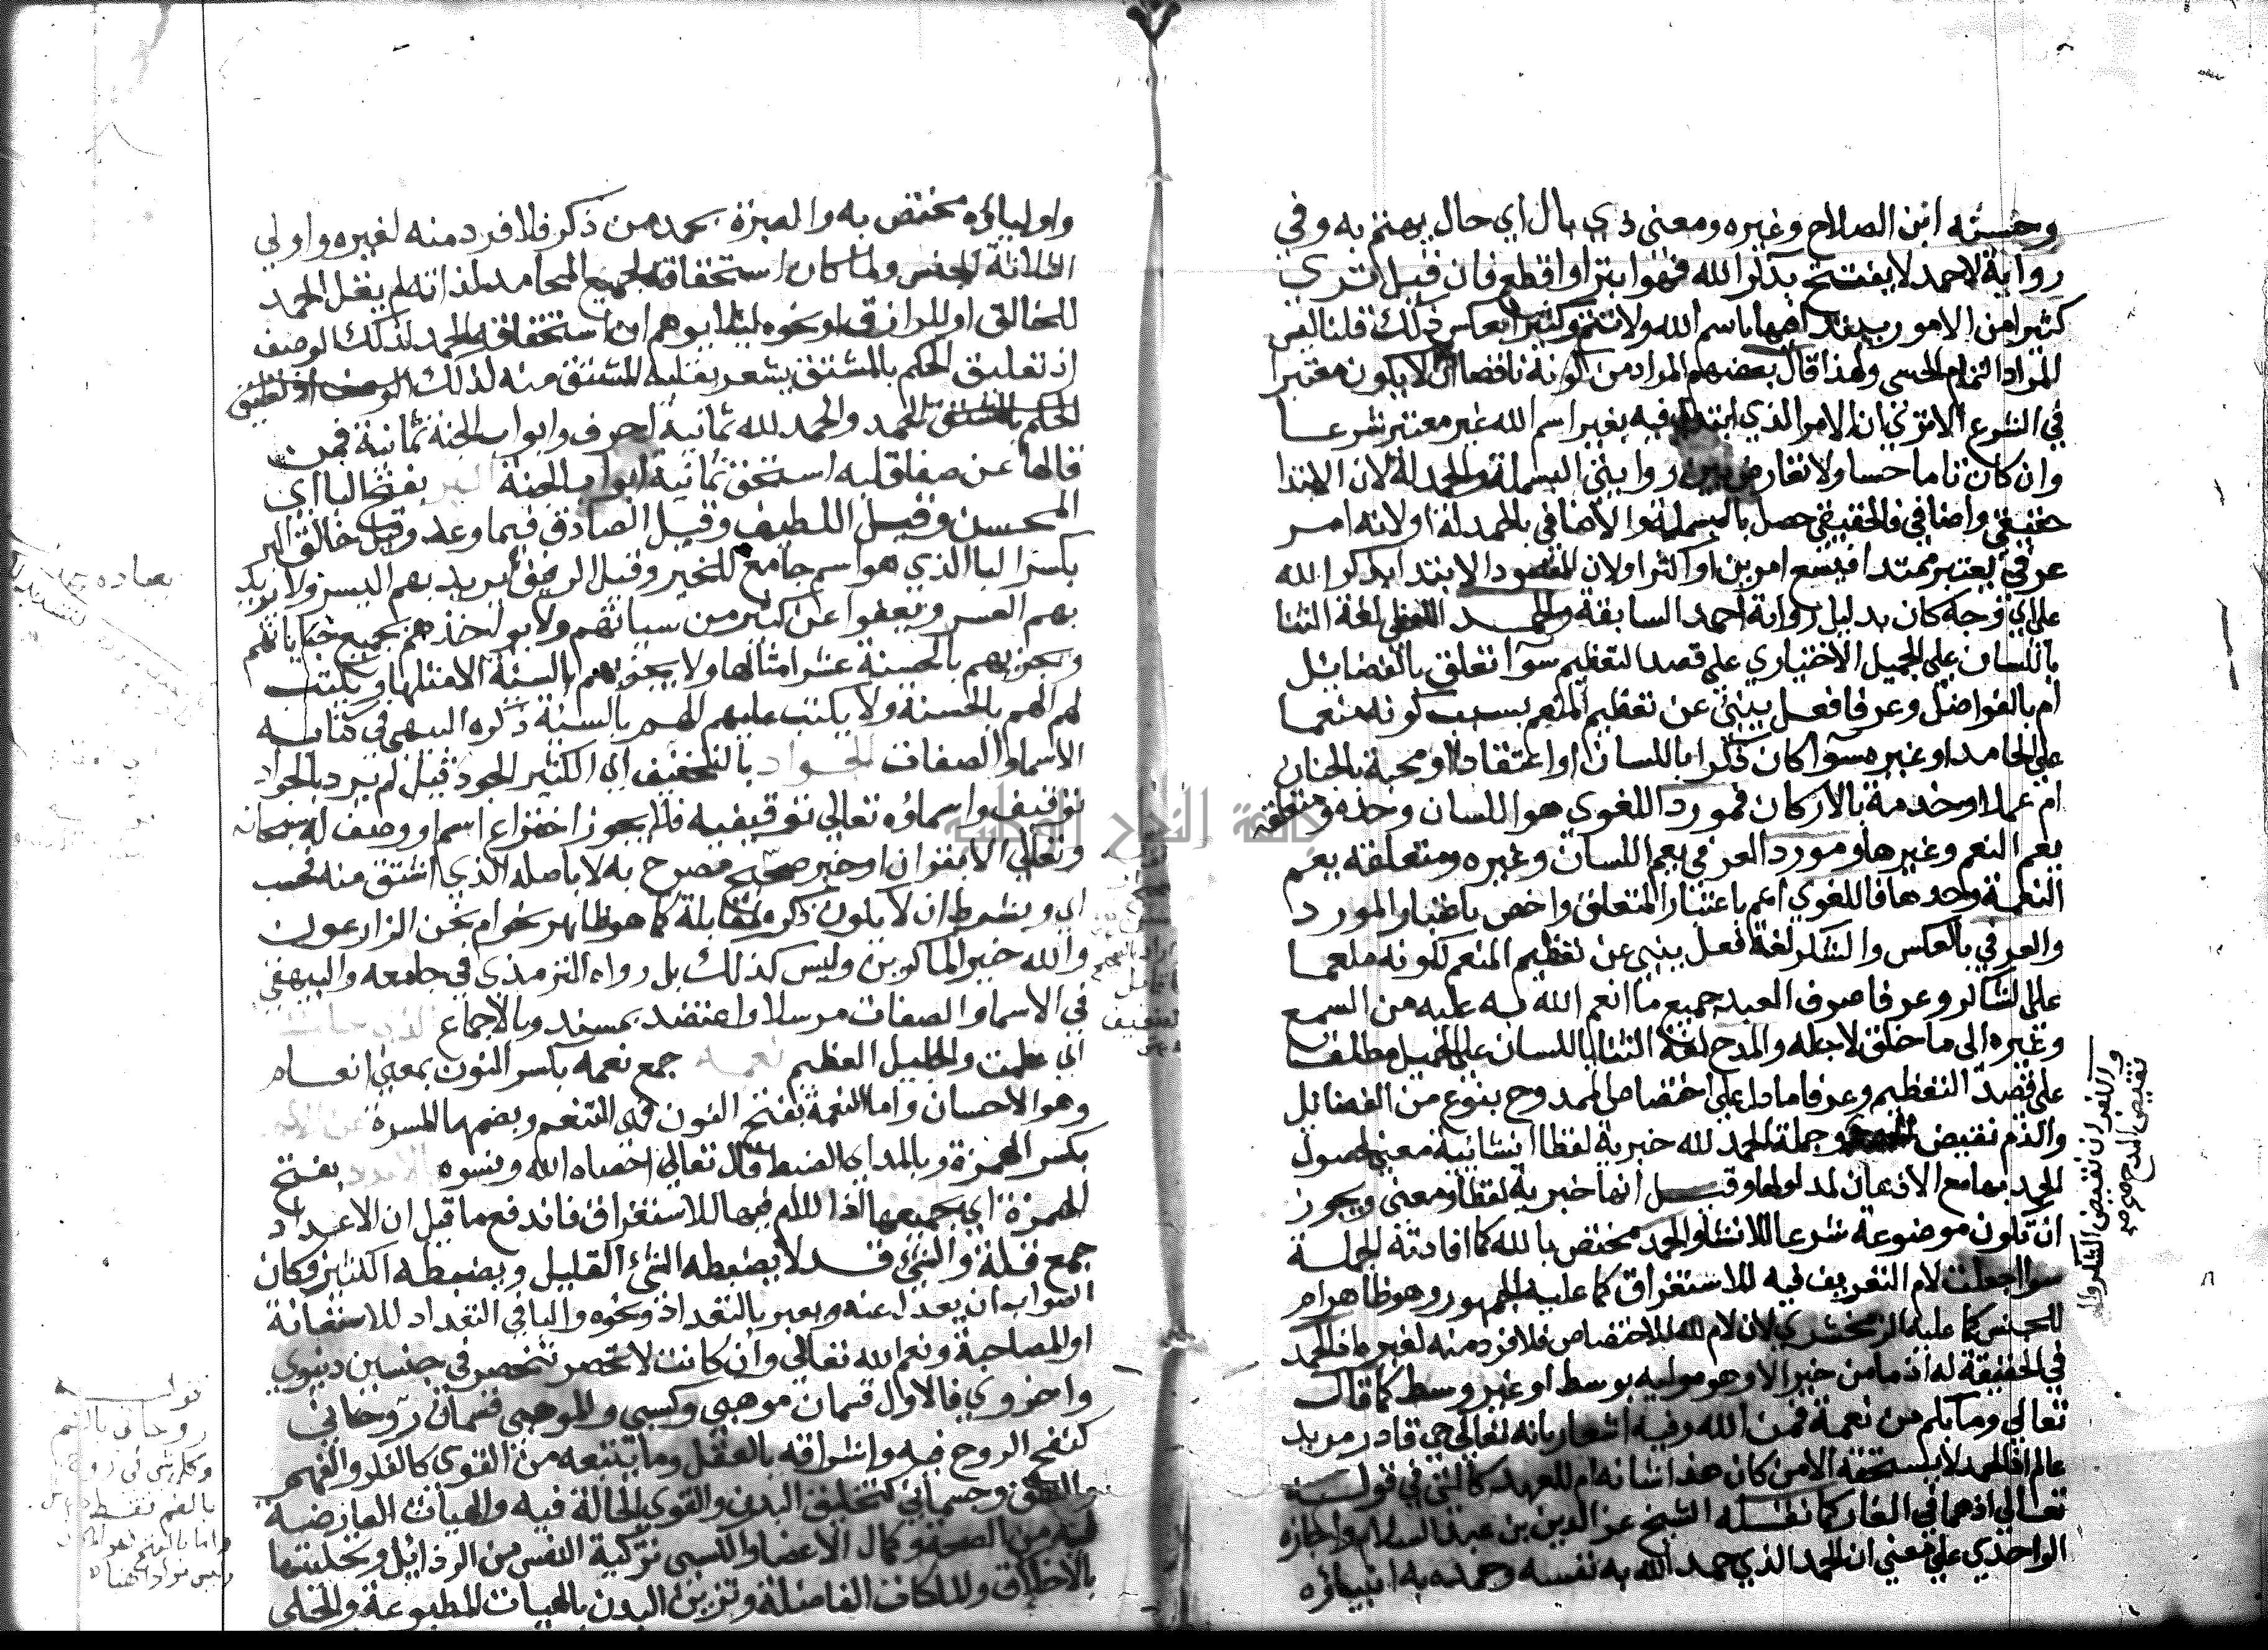 وحسنه ابن الصلاح وغيره ومعنى ذي بال اي حال يهتم به وفي
رواية لاحمد لا يفتتح بذكر الله فهو ابتر او اقطع فان قيل نرى
كثيرا من الامور يبتدا فيها باسم الله ولا تتم وكثيرا بعكس ذلك قلنا ليس
المراد التمام الحسي ولهذا قال بعضهم المراد من كونه ناقصا ان لا يكون معتبرا
في الشرع الا ترى ان الامر الذي ابتدي فيه بغير اسم الله غير معتبر شرعا
وان كان تاما حسا ولا تعارض بين روايتي البسملة والحمدلة لان الابتدا
حقيقي واضافي فالحقيقي حصل بالبسملة والاضافي بالحمدلة او لانه امر
عرفي يعتبر ممتدا فيسع امرين او اكثر او لان المقصود الابتدا بذكر الله
على اي وجه كان بدليل رواية احمد السابقة والحمد اللفظي لغة الثنا
باللسان على الجميل الاختياري على قصد التعظيم سوآ تعلق بالفضايل
ام بالفواضل وعرفا فعل ينبئ عن تعظيم المنعم بسبب كونه منعما
على الحامد او غيره سوآ كان ذكرا باللسان او اعتقادا ومحبة بالجنان
ام عملا وخدمة بالاركان فمورد اللغوي هو اللسان وحده ومتعلقه
يعم النعم وغيرها ومورد العرفي يعم اللسان وغيره ومتعلقه يعم
النعمة وحدها فاللغوي اعم باعتبار المتعلق واخص باعتبار المورد
والعرفي بالعكس والشكر لغة فعل ينبي عن تعظيم المنعم لكونه منعما
على الشاكر وعرفا صرف العبد جميع ما انعم الله به عليه من السمع
وغيره الى ما خلق لاجله والمدح لغة الثنا باللسان على الجميل مطلقا
على قصد التعظيم وعرفا ما دل على اختصاص الممدوح بنوع من الفضائل
والذم نقيض وجملة الحمد لله خبرية لفظا انشائية معنى لحصول
الحمد بها مع الاذعان لمدلولها وقيل انها خبرية لفظا ومعنى ويجوز
ان تكون موضوعة شرعا للانشا والحمد مختص بالله كما افادته الجملة
سوا جعلت لام التعريف فيه للاستغراق كما عليه الجمهور وهو ظاهر ام
للجنس كما عليه الزمخشري لان لام لله للاختصاص فلا فرد منه لغيره فالحمد
في الحقيقة له اذ ما من خير الا وهو موليه بوسط او غير وسط كما قال
تعالى وما بكم من نعمة فمن الله وفيه اشعار بانه تعالى حي قادر مريد
عالم اذ الحمد لا يستحقه الا من كان هذا شانه ام للعهد كالتي في قوله
تعالى اذ هما في الغار كما نقله الشيخ عز الدين بن عبد السلام واجازه
الواحدي على معنى ان الحمد الذي حمد الله به نفسه وحمده به انبياؤه
والكفران نقيض الشكر والذم
نقيض المدح صح
واولياؤه مختص به والعبرة بحمد من ذكر فلا فرد منه لغيره واولي
الثلاثة الجنس ولما كان استحقاقه لجميع المحامد لذاته لم يقل الحمد
للخالق او للرازق او نحوه ليلا يوهم ان استحقاقه الحمد لذلك الوصف
اذ تعليق الحكم بالمشتق يشعر بعلية المشتق منه لذلك
الحمد والحمد لله ثمانية احرف وابواب الجنة ثمانية فمن
قالها عن صفا قلبه استحق ثمانية ابواب الجنة البر بفتح البا اي
المحسن وقيل اللطيف وقيل الصادق فيما وعد وقيل خالق البر
بكسر البا الذي هو اسم جامع للخير وقيل الرفيق يريد بهم اليسر ولا يريد
بهم العسر ويعفوا عن كثير من سياتهم ولا يواخذهم بجميع خطاياتهم
ويجزيهم بالحسنة عشر امثالها ولا يجزيهم بالسيئة الا مثلها ويكتب
لهم الهم بالحسنة ولا يكتب عليهم الهم بالسيئة ذكره البيهقي في كتابه
الاسما والصفات الجواد بالتخفيف اي الكثير الجود قيل لم يرد بالجواد
توقيف واسماؤه تعالى توقيفية فلا يجوز اختراع اسم او وصف له سبحانه
وتعالى الا بقران او خبر صحيح مصرح به لا باصله الذي اشتق منه فحسب
اي وبشرط ان لا يكون ذكره لمقابلة كما هو ظاهر نحو ام نحن الزارعون
والله خير الماكرين وليس كذلك بل رواه الترمذي في جامعه والبيهقي
في الاسما والصفات مرسلا واعتضد بمسند وبالاجماع الذي جلت
اي عظمت والجليل العظيم نعمه جمع نعمه بكسر النون بمعنى انعام
وهو الاحسان واما النعمة بفتح النون فهي التنعم وبضمها المسرة عن الاحصا
بكسر الهمزة وبالمد اي الضبط قال تعالى احصاه الله ونسوه بالاعداد بفتح
الهمزة اي بجميعها اذ اللام فيها للاستغراق فاندفع ما قيل ان الاعداد
جمع قلة والشئ قد لا يضبطه الشئ القليل ويضبطه الكثير فكان
الصواب ان يعدل عنه ويعبر بالتعداد ونحوه والبا في التعداد للاستعانة
او للمصاحبة ونعم الله تعالى وان كانت لا تحصر تنحصر في جنسين دنيوي
واخروي فالاول قسمان موهبي وكسبي والموهبي قسمان روحاني
كنفخ الروح فيه واشراقه بالعقل وما يتبعه من القوى كالفكر والفهم
والنطق وجسماني كتخليق البدن والقوى الحالة فيه والهيات العارضة
له من الصحة وكمال الاعضا والكسبي تزكية النفس من الرذائل وتحليتها
بالاخلاق والملكات الفاضلة وتزيين البدن بالهيات المطبوعة والحلى
قوله
روحاني بالضم
بالضم نقط
واما بالفتح فهو
وليس مرادا هنا
جامعة النجاح الوطنية